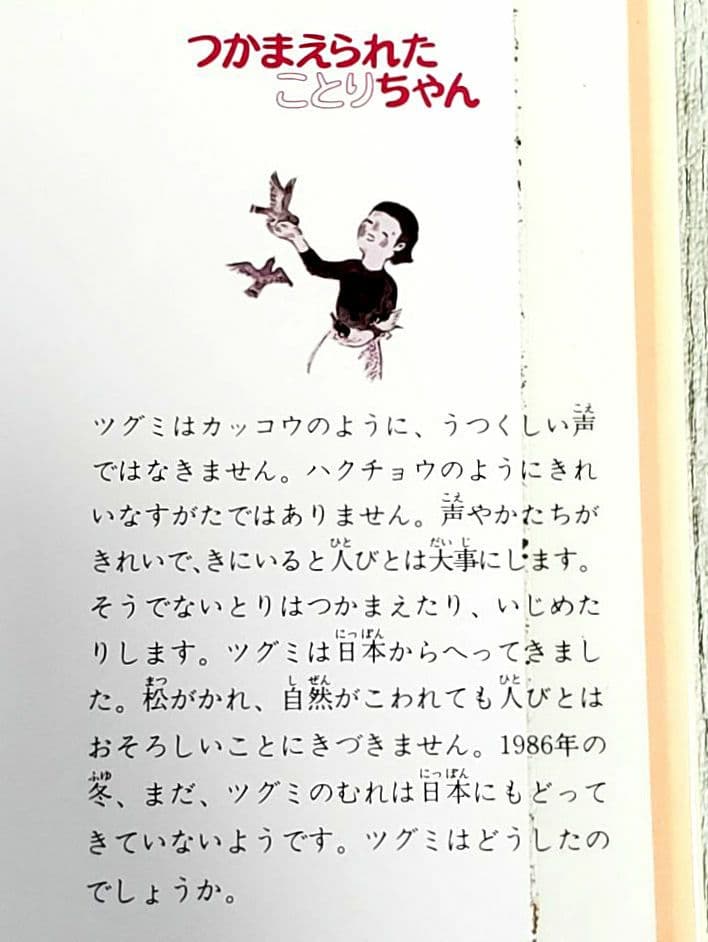 つかまえられた
ことりちゃん
ツグミはカッコウのように、うつくしい声
ではなきません。ハクチョウのようにきれ
いなすがたではありません。声やかたちが
きれいで、きにいると人びとは大事にします。
そうでないとりはつかまえたり、いじめた
りします。ツグミは日本からへってきまし
た。松がかれ、自然がこわれても人びとは
おそろしいことにきづきません。1986年の
冬、まだ、ツグミのむれは日本にもどって
きていないようです。ツグミはどうしたの
でしょうか。